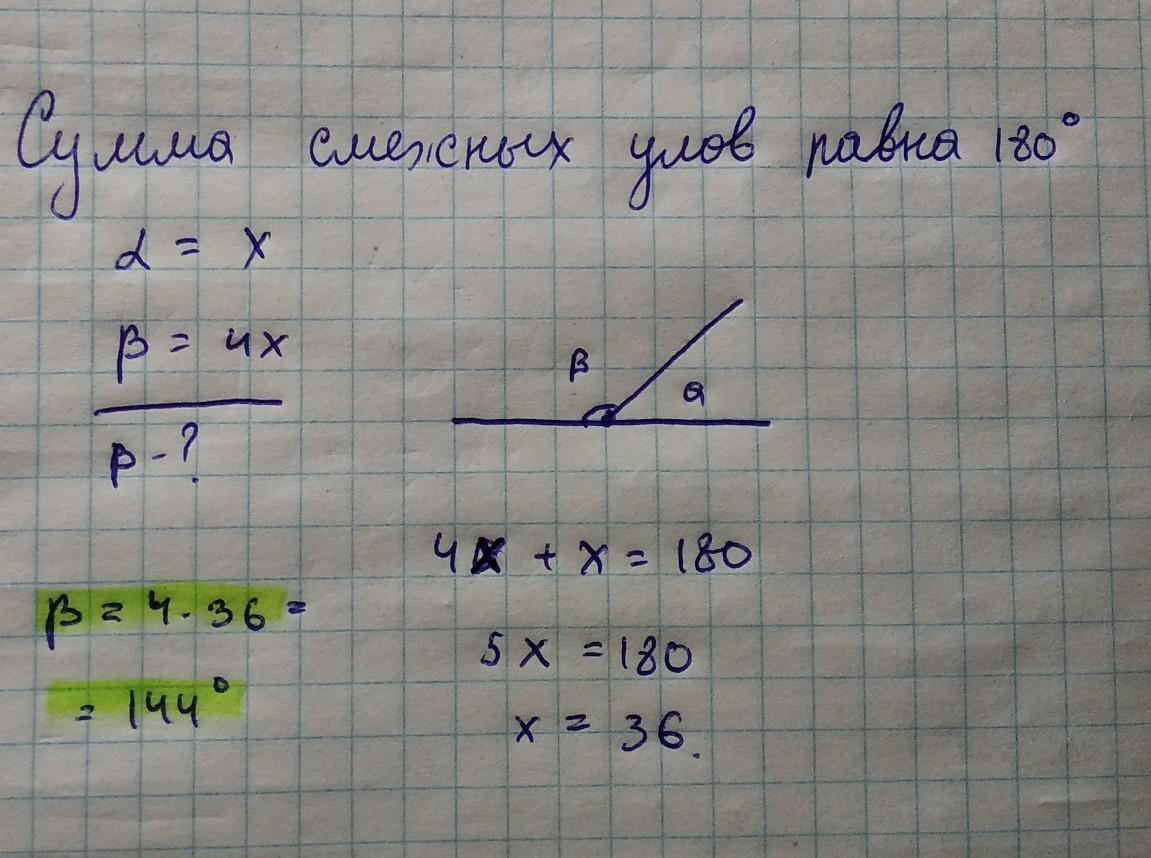 Сумма смежных улов равна 180°
α = x
β = 4x
β - ?
β
a
4x + x = 180
5x = 180
x = 36.
β = 4 · 36 =
= 144°